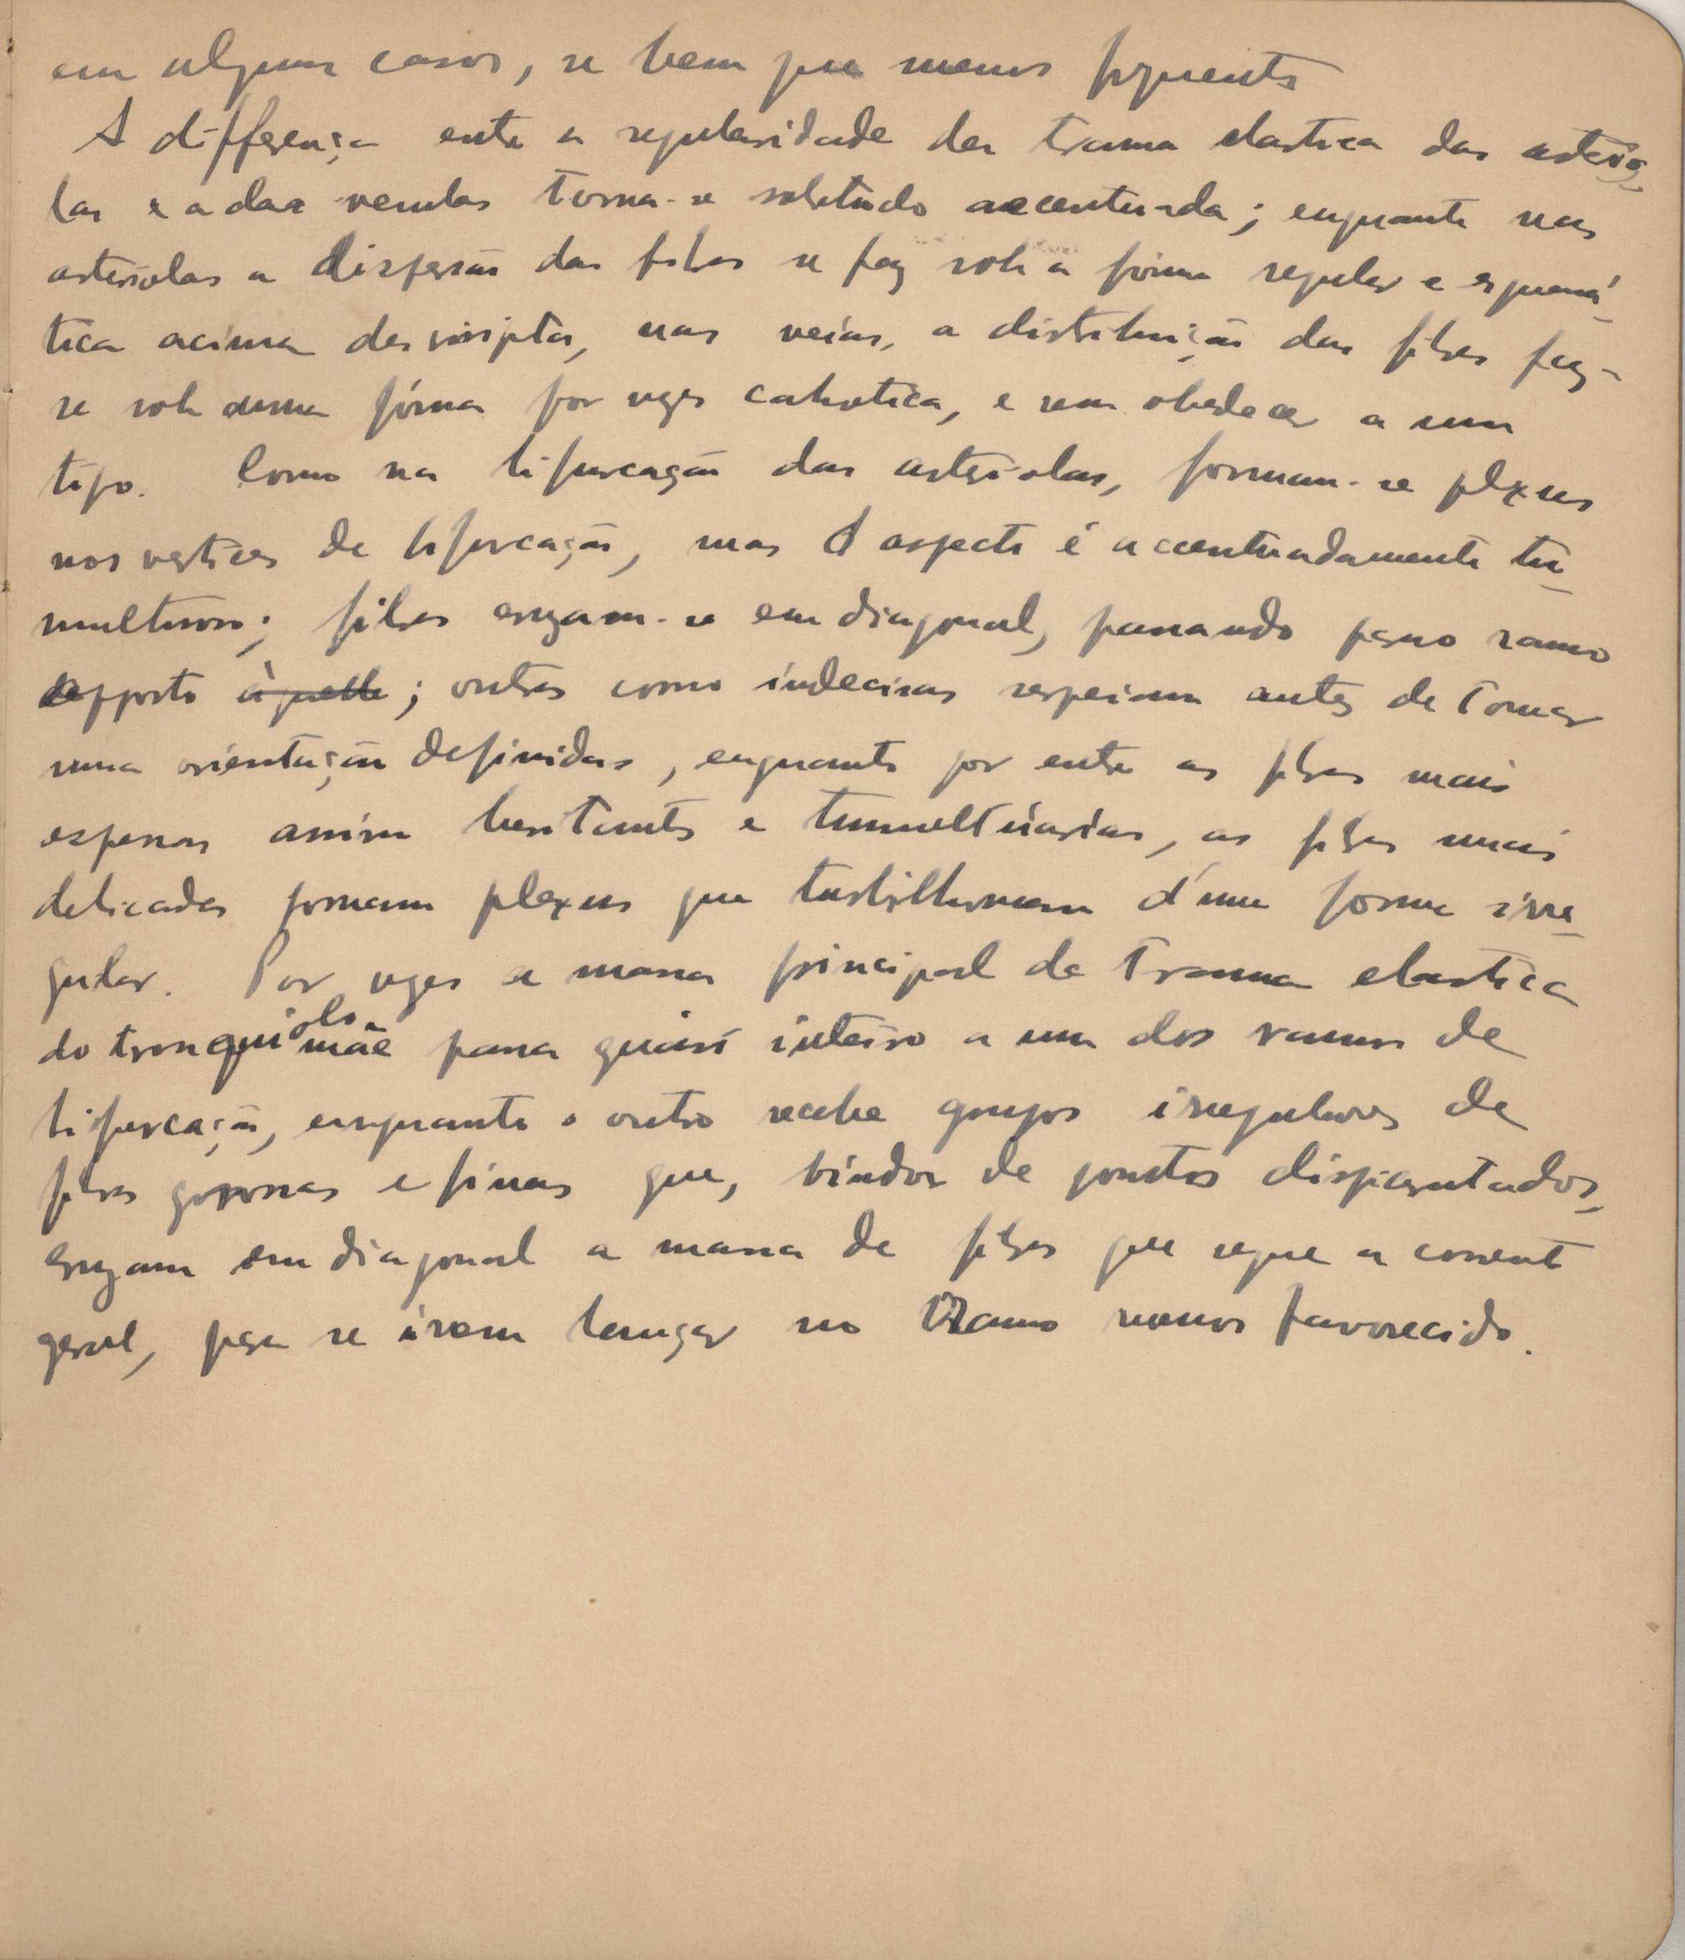 em alguns casos, se bem que menos frequente
A differença entre a regularidade da trama elastica das arterio-
las e a das venulas torna-se sobretudo accentuada; enquanto nas
arteriolas a dispersão das fibras se faz sob a fórma regular e esquemá-
tica acima descripta, nas veias, a distribuição das fibras faz-
se sob uma fórma por vezes cahotica, e sem obedecer a um
tipo. Como na bifurcação das arteriolas, formam-se plexus
nos vertices de bifurcação, mas o aspecto é accentuadamente tu-
multuoso; fibras cruzam-se em diagonal, passando para o ramo
opposto àquelle; outras como indecisas antes de tomar
uma orientação definida, enquanto por entre as fibras mais
espessas assim hesitantes e tumultuarias, as fibras mais
delicadas formam plexus que turbilhonam d'uma forma irre-
gular. Por vezes a massa principal da trama elastica
do tronquiolo mãe passa quasi inteiro a um dos ramos de
bifurcação, enquanto o outro recebe grupos irregulares de
fibras grossas e finas que, vindos de pontos dispartados,
cruzam em diagonal a massa de fibras que segue a corrente
geral, para se irem lançar no ramo menos favorecido.